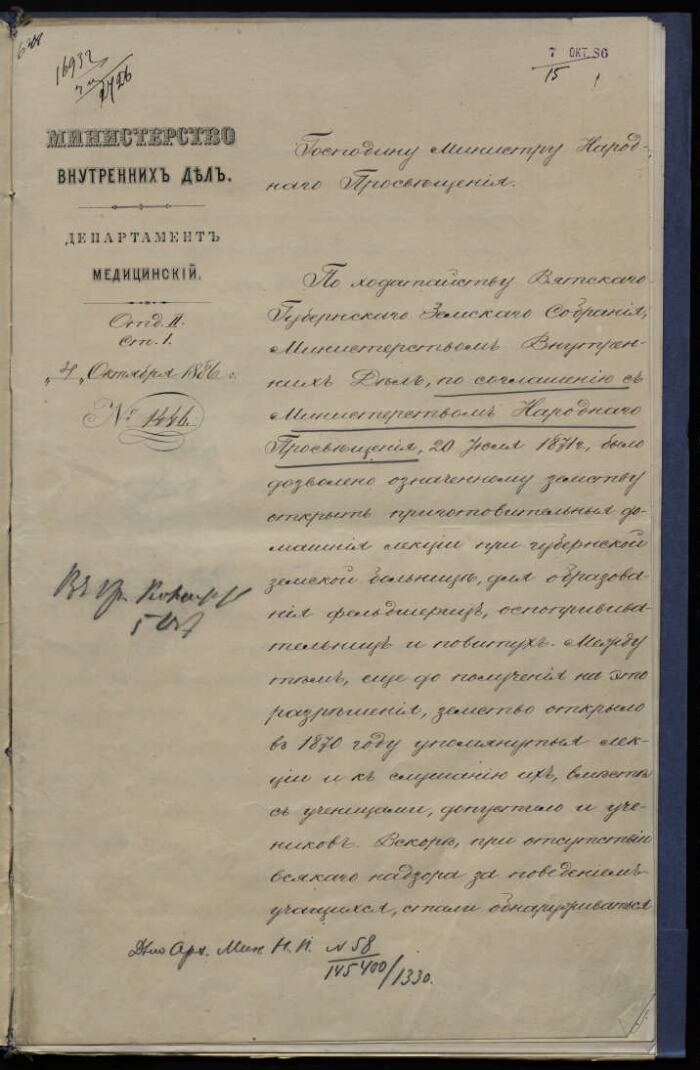 16932
2726
7 ОКТ.86
15
МИНИСТЕРСТВО
ВНУТРЕННИХЪ ДѢЛЪ.
ДЕПАРТАМЕНТЪ
МЕДИЦИНСКІЙ.
Отд. II.
ст. I.
„4„ Октября 1886 г.
№ 1446.
Господину Министру Народ-
наго Просвѣщенія.
По ходатайству Вятскаго
Губернскаго Земскаго Собранія,
Министерствомъ Внутрен-
нихъ Дѣлъ, по соглашенію съ
Министерствомъ Народнаго
Просвѣщенія, 20 Іюля 1871 г., было
дозволено означенному земству
открыть приготовительныя до-
машнія лекціи при губернской
земской больницѣ, для образова-
нія фельдшерицъ, оспопрививa-
тельницъ и повитухъ. Между
тѣмъ, еще до полученія на это
разрѣшенія, земство открыло
въ 1870 году упомянутыя лек-
ціи и къ слушанію ихъ, вмѣстѣ
съ ученицами, допустило и уче-
никовъ. Вскорѣ, при отсутствіи
всякаго надзора за поведеніемъ
учащихся, стали обнаруживаться
Дѣло Арх. Мин. Н. П. № 58
145400/1330.